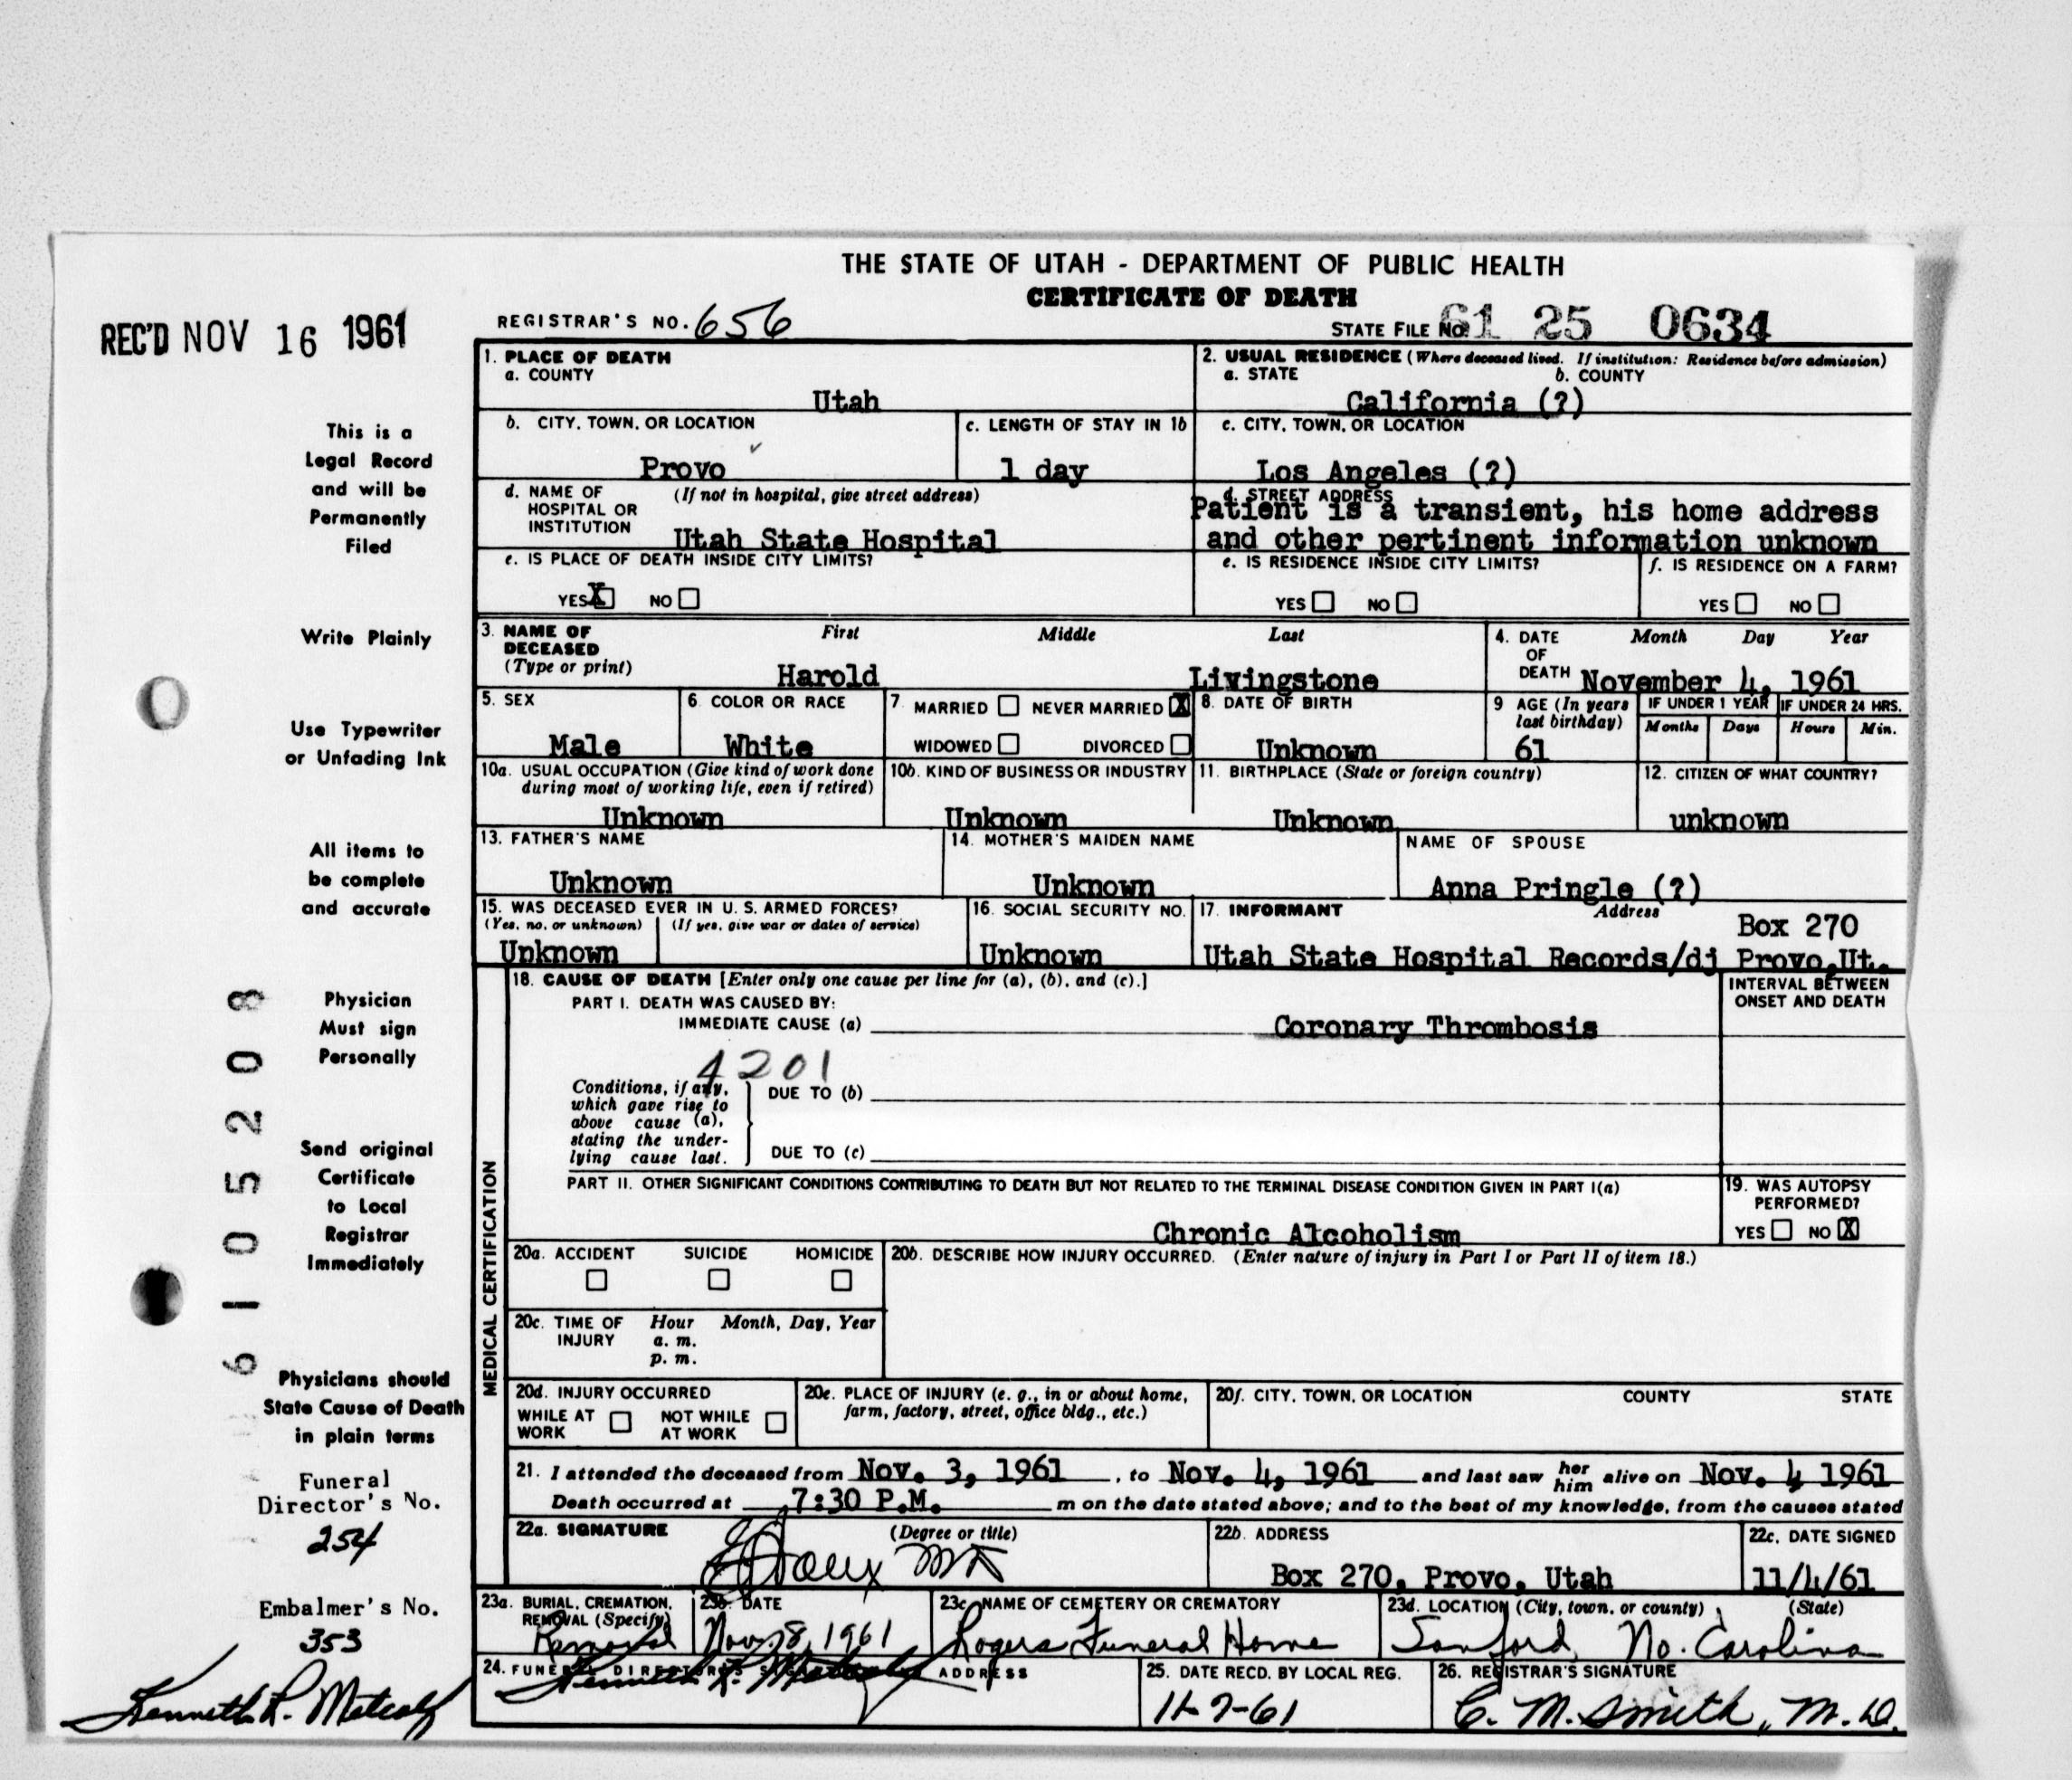 THE STATE OF UTAH - DEPARTMENT OF PUBLIC HEALTH
CERTIFICATE OF DEATH
REC'D NOV 16 1961
REGISTRAR'S NO. 656
STATE FILE No. 61 25 0634
1. PLACE OF DEATH
a. COUNTY
Utah
2. USUAL RESIDENCE (Where deceased lived. If institution: Residence before admission)
a. STATE b. COUNTY
California (?)
b. CITY, TOWN, OR LOCATION
Provo
c. LENGTH OF STAY IN 1b
1 day
c. CITY, TOWN, OR LOCATION
Los Angeles (?)
d. NAME OF HOSPITAL OR INSTITUTION (If not in hospital, give street address)
Utah State Hospital
d. STREET ADDRESS
Patient is a transient, his home address
and other pertinent information unknown
e. IS PLACE OF DEATH INSIDE CITY LIMITS?
YES X NO
e. IS RESIDENCE INSIDE CITY LIMITS?
YES NO
f. IS RESIDENCE ON A FARM?
YES NO
3. NAME OF DECEASED (Type or print)
First Middle Last
Harold Livingstone
4. DATE OF DEATH Month Day Year
November 4, 1961
5. SEX
Male
6. COLOR OR RACE
White
7. MARRIED NEVER MARRIED X
WIDOWED DIVORCED
8. DATE OF BIRTH
Unknown
9 AGE (In years last birthday)
61
IF UNDER 1 YEAR
Months Days
IF UNDER 24 HRS.
Hours Min.
10a. USUAL OCCUPATION (Give kind of work done during most of working life, even if retired)
Unknown
10b. KIND OF BUSINESS OR INDUSTRY
Unknown
11. BIRTHPLACE (State or foreign country)
Unknown
12. CITIZEN OF WHAT COUNTRY?
unknown
13. FATHER'S NAME
Unknown
14. MOTHER'S MAIDEN NAME
Unknown
NAME OF SPOUSE
Anna Pringle (?)
15. WAS DECEASED EVER IN U. S. ARMED FORCES?
(Yes, no, or unknown) (If yes, give war or dates of service)
Unknown
16. SOCIAL SECURITY NO.
Unknown
17. INFORMANT Address
Box 270
Utah State Hospital Records/dj Provo,Ut.
MEDICAL CERTIFICATION
18. CAUSE OF DEATH [Enter only one cause per line for (a), (b), and (c).]
INTERVAL BETWEEN ONSET AND DEATH
PART I. DEATH WAS CAUSED BY:
IMMEDIATE CAUSE (a) Coronary Thrombosis
4201
Conditions, if any, which gave rise to above cause (a), stating the underlying cause last.
DUE TO (b)
DUE TO (c)
PART II. OTHER SIGNIFICANT CONDITIONS CONTRIBUTING TO DEATH BUT NOT RELATED TO THE TERMINAL DISEASE CONDITION GIVEN IN PART I(a)
Chronic Alcoholism
19. WAS AUTOPSY PERFORMED?
YES NO X
20a. ACCIDENT SUICIDE HOMICIDE
20b. DESCRIBE HOW INJURY OCCURRED. (Enter nature of injury in Part I or Part II of item 18.)
20c. TIME OF INJURY Hour Month, Day, Year
a. m.
p. m.
20d. INJURY OCCURRED
WHILE AT WORK NOT WHILE AT WORK
20e. PLACE OF INJURY (e. g., in or about home, farm, factory, street, office bldg., etc.)
20f. CITY, TOWN, OR LOCATION COUNTY STATE
21. I attended the deceased from Nov. 3, 1961, to Nov. 4, 1961 and last saw her him alive on Nov. 4 1961
Death occurred at 7:30 P.M. m on the date stated above; and to the best of my knowledge, from the causes stated
22a. SIGNATURE (Degree or title)
22b. ADDRESS
Box 270, Provo, Utah
22c. DATE SIGNED
11/4/61
23a. BURIAL, CREMATION, REMOVAL (Specify)
Removal
23b. DATE
Nov. 8, 1961
23c. NAME OF CEMETERY OR CREMATORY
Rogers Funeral Home
23d. LOCATION (City, town, or county) (State)
Sanford, No. Carolina
24. FUNERAL DIRECTOR'S SIGNATURE ADDRESS
Kenneth R. Metcalf
25. DATE RECD. BY LOCAL REG.
11-7-61
26. REGISTRAR'S SIGNATURE
C. M. Smith, M.D.
This is a
Legal Record
and will be
Permanently
Filed
Write Plainly
Use Typewriter
or Unfading Ink
All items to
be complete
and accurate
Physician
Must sign
Personally
Send original
Certificate
to Local
Registrar
Immediately
Physicians should
State Cause of Death
in plain terms
6105208
Funeral
Director's No.
254
Embalmer's No.
353
Kenneth R. Metcalf